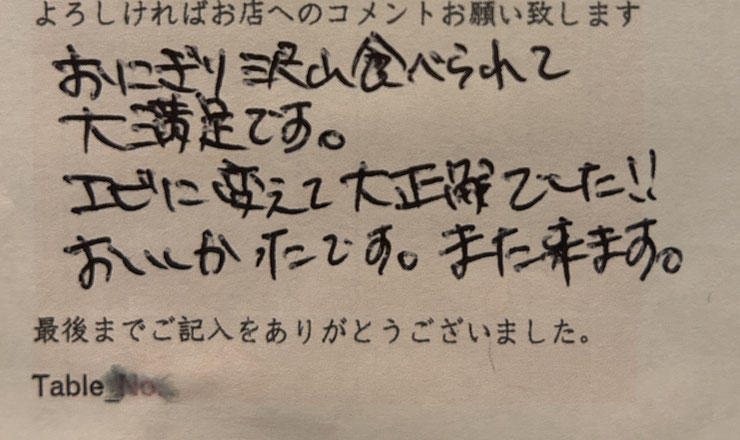 よろしければお店へのコメントお願い致します
おにぎり沢山食べられて
大満足です。
エビに変えて大正解でした!!
おいしかったです。また来ます。
最後までご記入をありがとうございました。
Table_No.